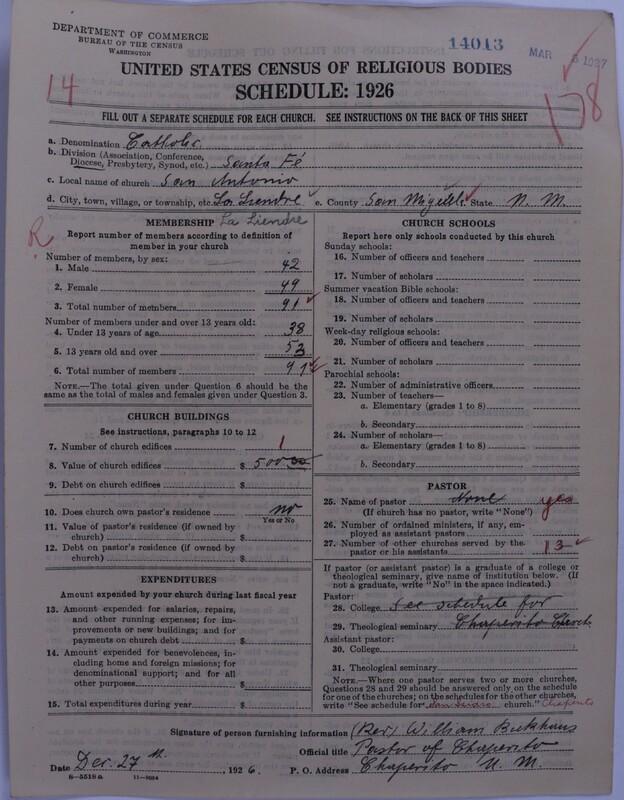 DEPARTMENT OF COMMERCE
BUREAU OF THE CENSUS
WASHINGTON
14013
MAR 1927
UNITED STATES CENSUS OF RELIGIOUS BODIES
14
SCHEDULE: 1926
178
FILL OUT A SEPARATE SCHEDULE FOR EACH CHURCH. SEE INSTRUCTIONS ON THE BACK OF THIS SHEET
a. Denomination Catholic
b. Division (Association, Conference, Diocese, Presbytery, Synod, etc.) Santa Fé
c. Local name of church San Antonio
d. City, town, village, or township, etc. La Liendre e. County San Miguel f. State N. M.
MEMBERSHIP La Liendre
R
Report number of members according to definition of
member in your church
Number of members, by sex:
1. Male 42
2. Female 49
3. Total number of members 91
Number of members under and over 13 years old:
4. Under 13 years of age 38
5. 13 years old and over 53
6. Total number of members 91
NOTE.—The total given under Question 6 should be
the same as the total of males and females given under Question 3.
CHURCH BUILDINGS
See instructions, paragraphs 10 to 12
7. Number of church edifices 1
8. Value of church edifices $ 500 00
9. Debt on church edifices $
10. Does church own pastor's residence no
Yes or No
11. Value of pastor's residence (if owned by
church) $
12. Debt on pastor's residence (if owned by
church) $
EXPENDITURES
Amount expended by your church during last fiscal year
13. Amount expended for salaries, repairs,
and other running expenses; for im-
provements or new buildings; and for
payments on church debt $
14. Amount expended for benevolences, in-
cluding home and foreign missions; for
denominational support; and for all
other purposes $
15. Total expenditures during year $
CHURCH SCHOOLS
Report here only schools conducted by this church
Sunday schools:
16. Number of officers and teachers
17. Number of scholars
Summer vacation Bible schools:
18. Number of officers and teachers
19. Number of scholars
Week-day religious schools:
20. Number of officers and teachers
21. Number of scholars
Parochial schools:
22. Number of administrative officers
23. Number of teachers—
a. Elementary (grades 1 to 8)
b. Secondary
24. Number of scholars—
a. Elementary (grades 1 to 8)
b. Secondary
PASTOR
25. Name of pastor None yes
(If church has no pastor, write "None")
26. Number of ordained ministers, if any, em-
ployed as assistant pastors
27. Number of other churches served by the
pastor or his assistants 13
If pastor (or assistant pastor) is a graduate of a college or
theological seminary, give name of institution below. (If
not a graduate, write "No" in the space indicated.)
Pastor:
28. College See schedule for
29. Theological seminary Chaperito Church
Assistant pastor:
30. College
31. Theological seminary
NOTE.—Where one pastor serves two or more churches,
Questions 28 and 29 should be answered only on the schedule
for one of the churches; on the schedules for the other churches,
write "See schedule for church." Chaperito
Signature of person furnishing information (Rev) William Bickhaus
Official title Pastor of Chaperito
Date Dec. 27 th, 1926. P. O. Address Chaperito N. M.
8—5518a 11—9034